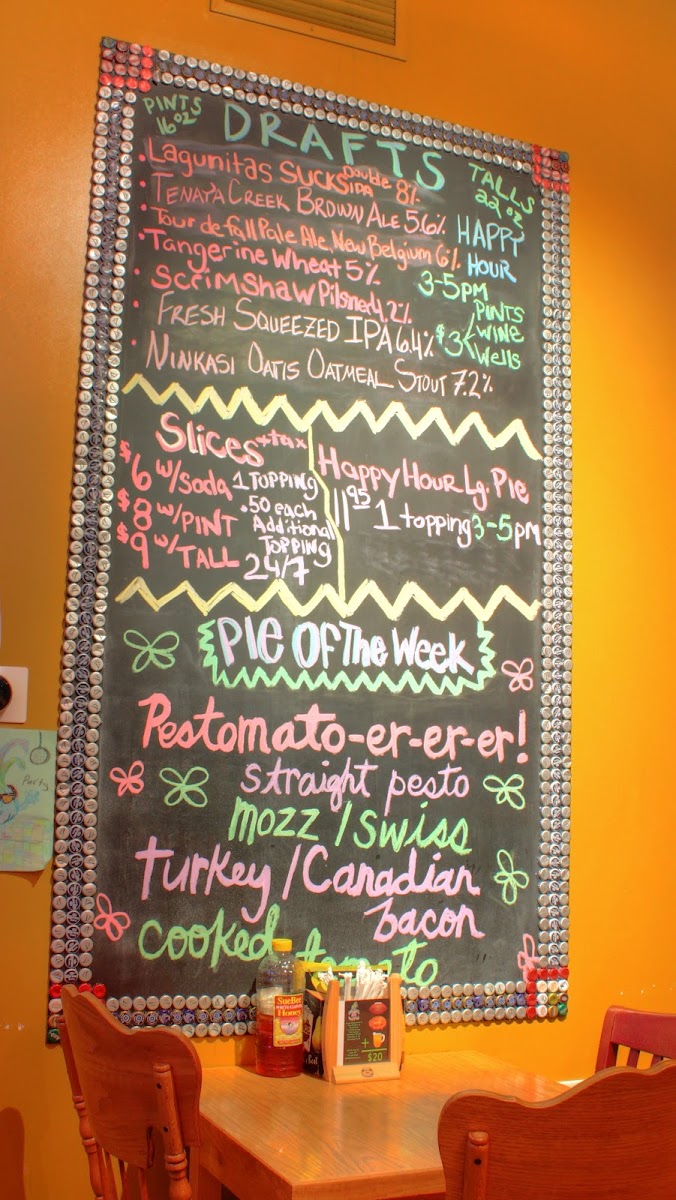 PINTS
16 oz
DRAFTS
TALLS
22 oz
• Lagunitas Sucks Double IPA 8%
• Tenaya Creek Brown Ale 5.6%
• Tour de Fall Pale Ale, New Belgium 6%
• Tangerine Wheat 5%
• Scrimshaw Pilsner 4.2%
• Fresh Squeezed IPA 6.4%
• Ninkasi Oatis Oatmeal Stout 7.2%
HAPPY
HOUR
3-5pm
$3 < PINTS
WINE
Wells
Slices +tax
$6 w/Soda
$8 w/PINT
$9 w/TALL
1 TOPPING
• .50 each
Additional
TOPPING
24/7
Happy Hour Lg. Pie
11 95 1 topping 3-5pm
Pie Of The Week
Pestomato-er-er-er!
straight pesto
mozz/swiss
turkey/Canadian
bacon
cooked tomato
SueBee
Honey
+
$20
Party